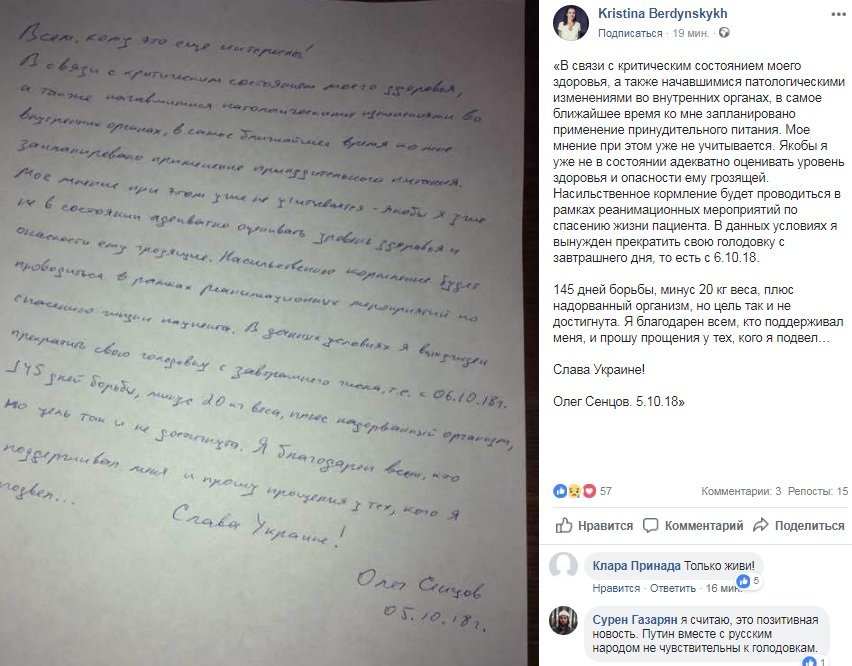 Всем, кому это ещё интересно!
В связи с критическим состоянием моего здоровья,
а также начавшимися патологическими изменениями во
внутренних органах, в самое ближайшее время ко мне
запланировано применение принудительного питания.
Мое мнение при этом уже не учитывается - якобы я уже
не в состоянии адекватно оценивать уровень здоровья и
опасности ему грозящие. Насильственное кормление будет
проводиться в рамках реанимационных мероприятий по
спасению жизни пациента. В данных условиях я вынужден
прекратить свою голодовку с завтрашнего числа, т.е. с 06.10.18г.
145 дней борьбы, минус 20 кг веса, плюс надорванный организм,
но цель так и не достигнута. Я благодарен всем, кто
поддерживал меня и прошу прощения у тех, кого я
подвел...
Слава Украине!
Олег Сенцов
05.10.18г.
Kristina Berdynskykh
Подписаться · 19 мин. ·
«В связи с критическим состоянием моего
здоровья, а также начавшимися патологическими
изменениями во внутренних органах, в самое
ближайшее время ко мне запланировано
применение принудительного питания. Мое
мнение при этом уже не учитывается. Якобы я
уже не в состоянии адекватно оценивать уровень
здоровья и опасности ему грозящей.
Насильственное кормление будет проводиться в
рамках реанимационных мероприятий по
спасению жизни пациента. В данных условиях я
вынужден прекратить свою голодовку с
завтрашнего дня, то есть с 6.10.18.
145 дней борьбы, минус 20 кг веса, плюс
надорванный организм, но цель так и не
достигнута. Я благодарен всем, кто поддерживал
меня, и прошу прощения у тех, кого я подвел…
Слава Украине!
Олег Сенцов. 5.10.18»
57
Комментарии: 3 Репосты: 15
Нравится Комментарий Поделиться
Клара Принада Только живи!
5
Нравится · Ответить · 16 мин.
Сурен Газарян я считаю, это позитивная
новость. Путин вместе с русским
народом не чувствительны к голодовкам.
1